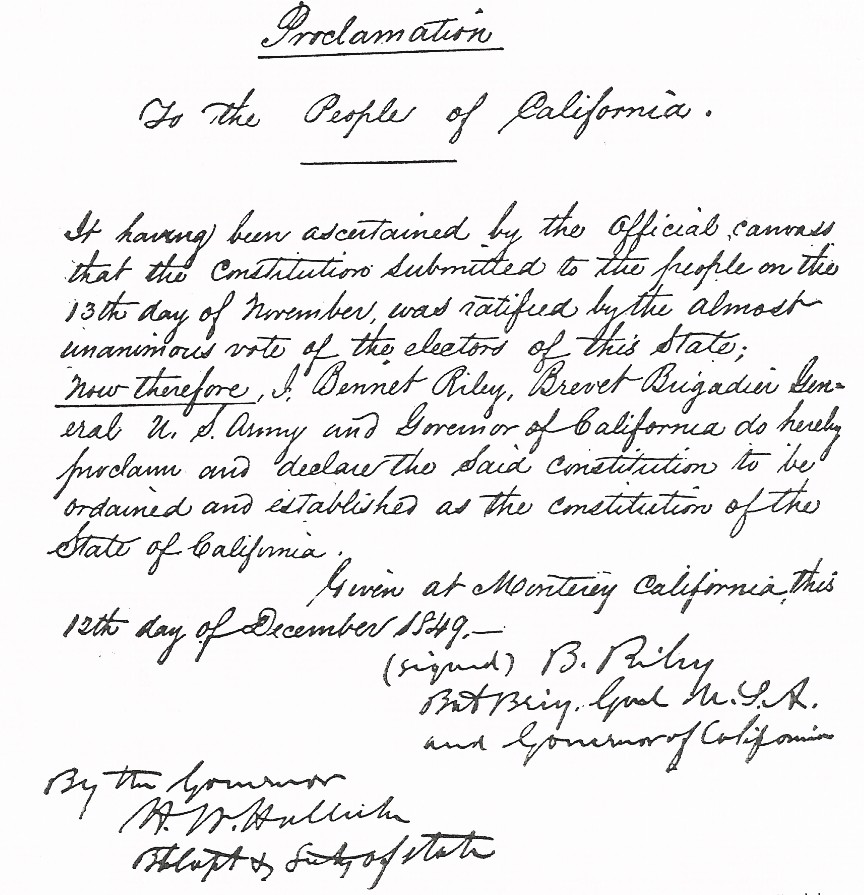 Proclamation
To the People of California.
It having been ascertained by the Official canvass
that the Constitution submitted to the people on the
13th day of November, was ratified by the almost
unanimous vote of the electors of this State;
Now therefore, I, Bennet Riley, Brevet Brigadier Gen=
eral U. S. Army and Governor of California do hereby
proclaim and declare the Said constitution to be
ordained and established as the constitution of the
State of California.
Given at Monterey California, this
12th day of December 1849.—
(signed) B. Riley
Bvt Brig. Genl U.S.A.
and Governor of California
By the Governor
H. W. Halleck
Bt Capt & Secty of State